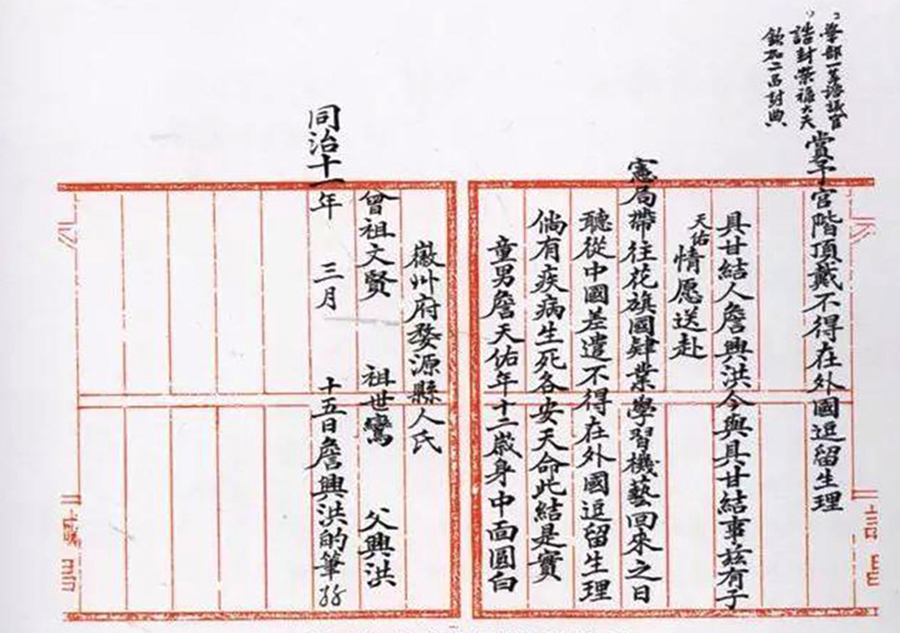 學部一等諮議官
誥封榮祿大夫
欽加二品封典
賞予官階頂戴不得在外國逗留生理
具甘結人詹興洪今與具甘結事茲有子
天佑情愿送赴
憲局帶往花旗國肄業學習機藝回來之日
聽從中國差遣不得在外國逗留生理
倘有疾病生死各安天命此結是實
童男詹天佑年十二歲身中面圓白
徽州府婺源縣人氏
曾祖文賢 祖世鸞 父興洪
同治十一年 三月 十五日詹興洪的筆